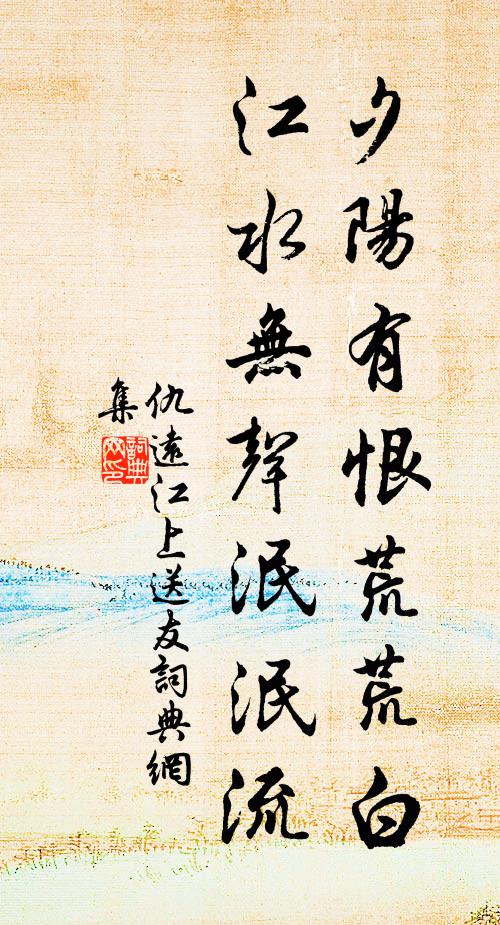 夕陽有恨荒荒白
江水無聲泯泯流
仇遠江上送友詞典網
集
詞典
网印